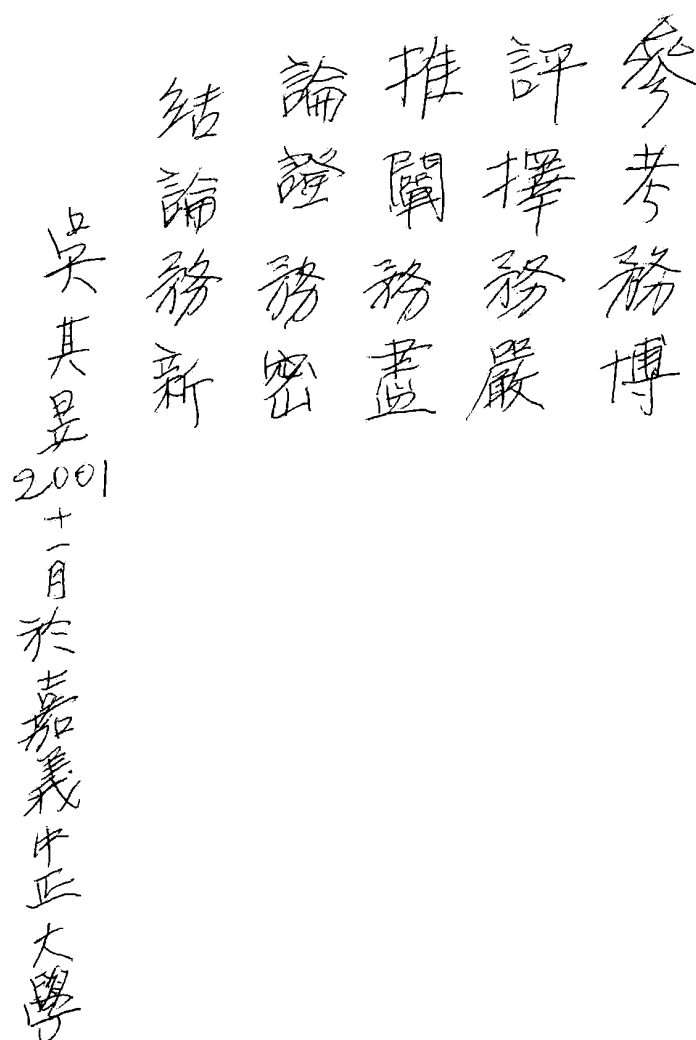 參考務博
評擇務嚴
推闡務盡
論證務密
結論務新
吳其昱2001十一月於嘉義中正大學